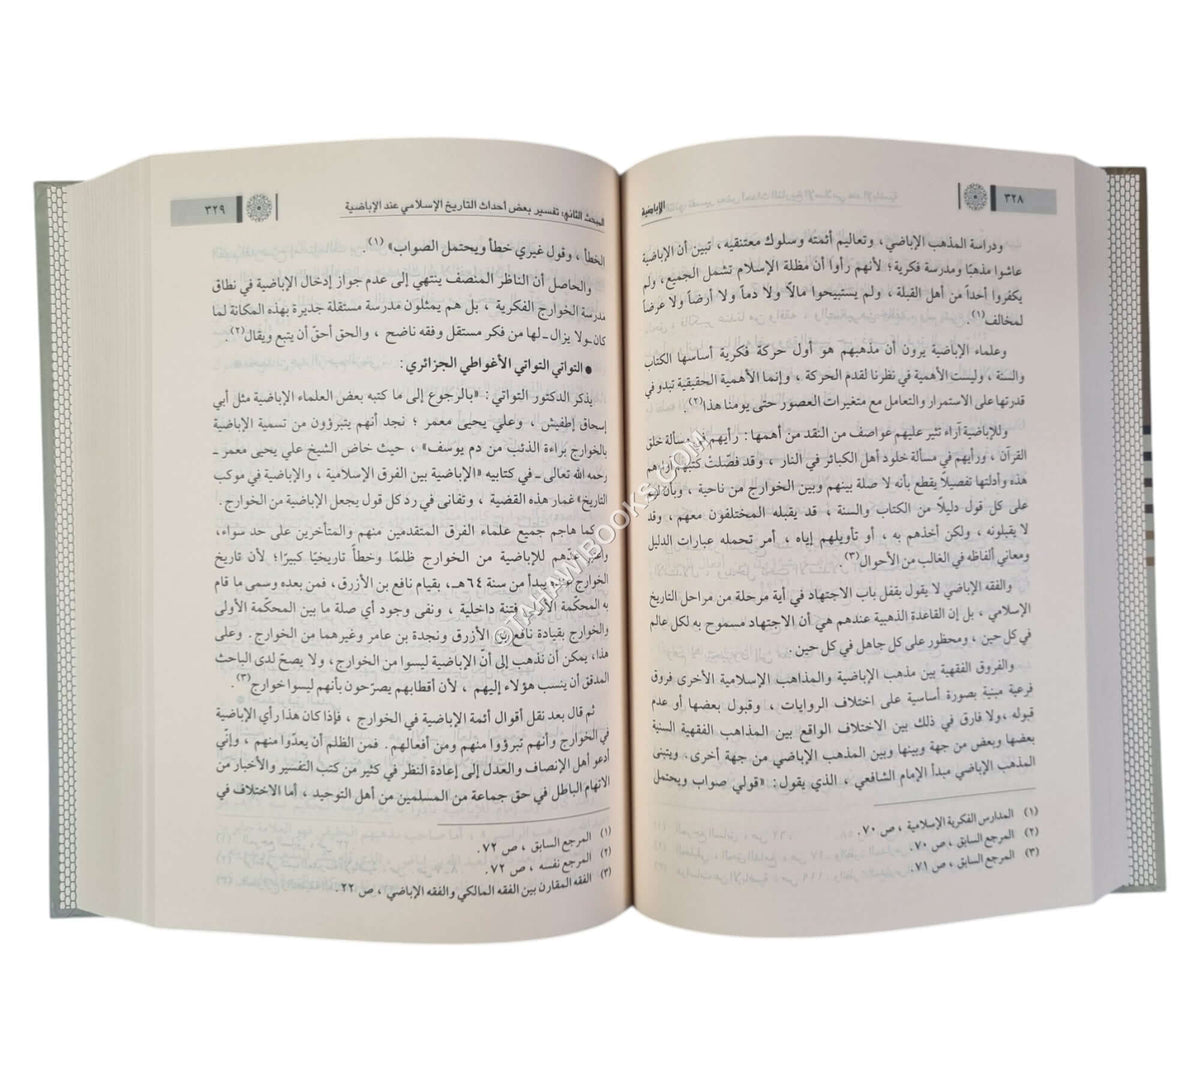 ٣٢٨
الإباضية
ودراسة المذهب الإباضي، وتعاليم أئمته وسلوك معتنقيه، تبين أن الإباضية
عاشوا مذهبًا ومدرسة فكرية؛ لأنهم رأوا أن مظلة الإسلام تشمل الجميع، ولم
يكفروا أحداً من أهل القبلة، ولم يستبيحوا مالاً ولا دماً ولا أرضاً ولا عرضاً
لمخالف(١).
وعلماء الإباضية يرون أن مذهبهم هو أول حركة فكرية أساسها الكتاب
والسنة، وليست الأهمية في نظرنا لقدم الحركة، وإنما الأهمية الحقيقية تبدو في
قدرتها على الاستمرار والتعامل مع متغيرات العصور حتى يومنا هذا(٢).
وللإباضية آراء تثير عليهم عواصف من النقد من أهمها: رأيهم في مسألة خلق
القرآن، ورأيهم في مسألة خلود أهل الكبائر في النار، وقد فصّلتْ كتبهم آراءهم
هذه وأدلتها تفصيلاً يقطع بأنه لا صلة بينهم وبين الخوارج من ناحية، وبأن لهم
على كل قول دليلاً من الكتاب والسنة، قد يقبله المختلفون معهم، وقد
لا يقبلونه، ولكن أخذهم به، أو تأويلهم إياه، أمر تحمله عبارات الدليل
ومعاني ألفاظه في الغالب من الأحوال(٣).
والفقه الإباضي لا يقول بقفل باب الاجتهاد في أية مرحلة من مراحل التاريخ
الإسلامي، بل إن القاعدة الذهبية عندهم هي أن الاجتهاد مسموح به لكل عالم
في كل حين، ومحظور على كل جاهل في كل حين.
والفروق الفقهية بين مذهب الإباضية والمذاهب الإسلامية الأخرى فروق
فرعية مبنية بصورة أساسية على اختلاف الروايات، وقبول بعضها أو عدم
قبوله، ولا فارق في ذلك بين الاختلاف الواقع بين المذاهب الفقهية السنية
بعضها وبعض من جهة وبينها وبين المذهب الإباضي من جهة أخرى. ويتبنى
المذهب الإباضي مبدأ الإمام الشافعي، الذي يقول: «قولي صواب ويحتمل
(١) المدارس الفكرية الإسلامية، ص ٧٠.
(٢) المرجع السابق، ص ٧٠.
(٣) المرجع السابق، ص ٧١.
المبحث الثاني: تفسير بعض أحداث التاريخ الإسلامي عند الإباضية
٣٢٩
الخطأ، وقول غيري خطأ ويحتمل الصواب»(١).
والحاصل أن الناظر المنصف ينتهي إلى عدم جواز إدخال الإباضية في نطاق
مدرسة الخوارج الفكرية، بل هم يمثلون مدرسة مستقلة جديرة بهذه المكانة لما
كان ـ ولا يزال ـ لها من فكر مستقل وفقه ناضج، والحق أحقّ أن يتبع ويقال(٢).
● التواتي التواتي الأغواطي الجزائري:
يذكر الدكتور التواتي: «بالرجوع إلى ما كتبه بعض العلماء الإباضية مثل أبي
إسحاق إطفيش، وعلي يحيى معمر؛ نجد أنهم يتبرؤون من تسمية الإباضية
بالخوارج براءة الذئب من دم يوسف»، حيث خاض الشيخ علي يحيى معمر ـ
رحمه الله تعالى ـ في كتابيه «الإباضية بين الفرق الإسلامية، والإباضية في موكب
التاريخ» غمار هذه القضية، وتفانى في رد كل قول يجعل الإباضية من الخوارج.
كما هاجم جميع علماء الفرق المتقدمين منهم والمتأخرين على حد سواء،
عدّهم للإباضية من الخوارج ظلمًا وخطأ تاريخيًا كبيرًا؛ لأن تاريخ
الخوارج يبدأ من سنة ٦٤هـ، بقيام نافع بن الأزرق، فمن بعده وسمى ما قام
به المحكمة فتنة داخلية، ونفى وجود أي صلة ما بين المحكمة الأولى
والخوارج بقيادة نافع الأزرق ونجدة بن عامر وغيرهما من الخوارج. وعلى
هذا، يمكن أن نذهب إلى أنّ الإباضية ليسوا من الخوارج، ولا يصحّ لدى الباحث
المدقق أن ينسب هؤلاء إليهم، لأن أقطابهم يصرّحون بأنهم ليسوا خوارج(٣).
ثم قال بعد نقل أقوال أئمة الإباضية في الخوارج، فإذا كان هذا رأي الإباضية
في الخوارج وأنهم تبرؤوا منهم ومن أفعالهم. فمن الظلم أن يعدّوا منهم، وإنّي
أدعو أهل الإنصاف والعدل إلى إعادة النظر في كثير من كتب التفسير والأخبار من
الاتهام الباطل في حق جماعة من المسلمين من أهل التوحيد، أما الاختلاف في
(١) المرجع السابق، ص ٧٢.
(٢) المرجع نفسه، ص ٧٢.
(٣) الفقه المقارن بين الفقه المالكي والفقه الإباضي، ص ٢٢.
©TAHAWIBOOKS.COM